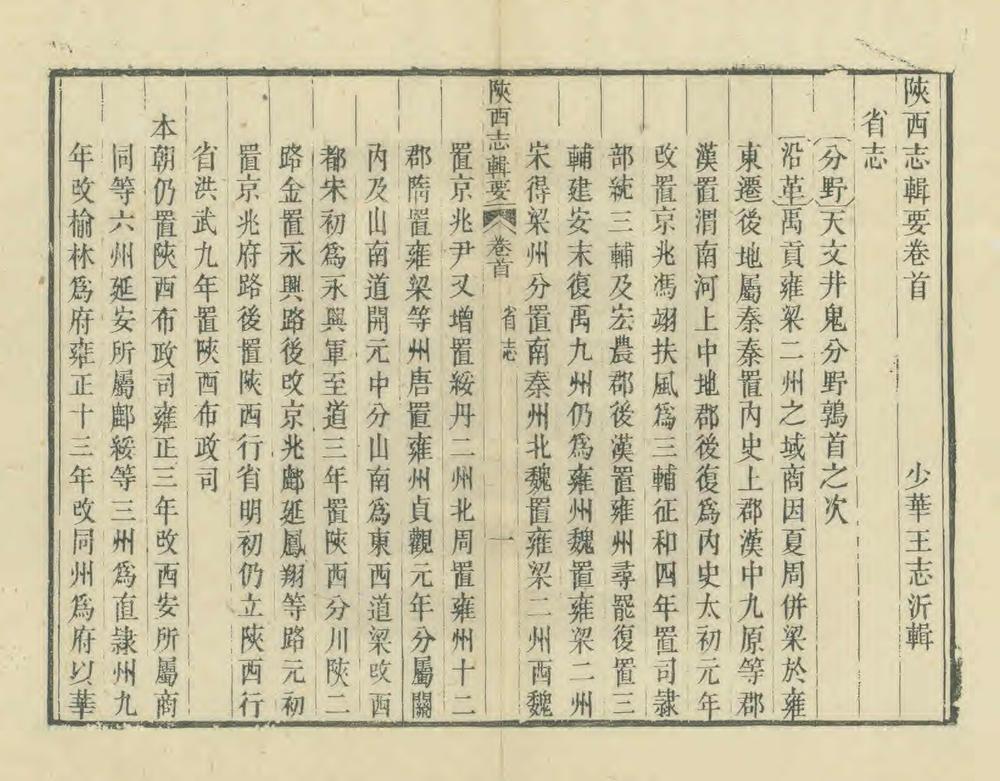 陝西志輯要卷首　少華王志沂輯
省志
分野天文井鬼分野鶉首之次
沿革禹貢雍梁二州之域商因夏周併梁於雍
東遷後地屬秦秦置內史上郡漢中九原等郡
漢置渭南河上中地郡後復爲內史太初元年
改置京兆馮翊扶風爲三輔征和四年置司隷
部統三輔及宏農郡後漢置雍州尋罷復置三
輔建安末復禹九州仍爲雍州魏置雍梁二州
宋得梁州分置南秦州北魏置雍梁二州西魏
陝西志輯要　卷首　省志　一
置京兆尹又增置綏丹二州北周置雍州十二
郡隋置雍梁等州唐置雍州貞觀元年分屬關
內及山南道開元中分山南爲東西道梁改西
都宋初爲永興軍至道三年置陝西分川陝二
路金置永興路後改京兆鄜延鳳翔等路元初
置京兆府路後置陝西行省明初仍立陝西行
省洪武九年置陝西布政司
本朝仍置陝西布政司雍正三年改西安所屬商
同等六州延安所屬鄜綏等三州爲直隷州九
年改榆林爲府雍正十三年改同州爲府以華